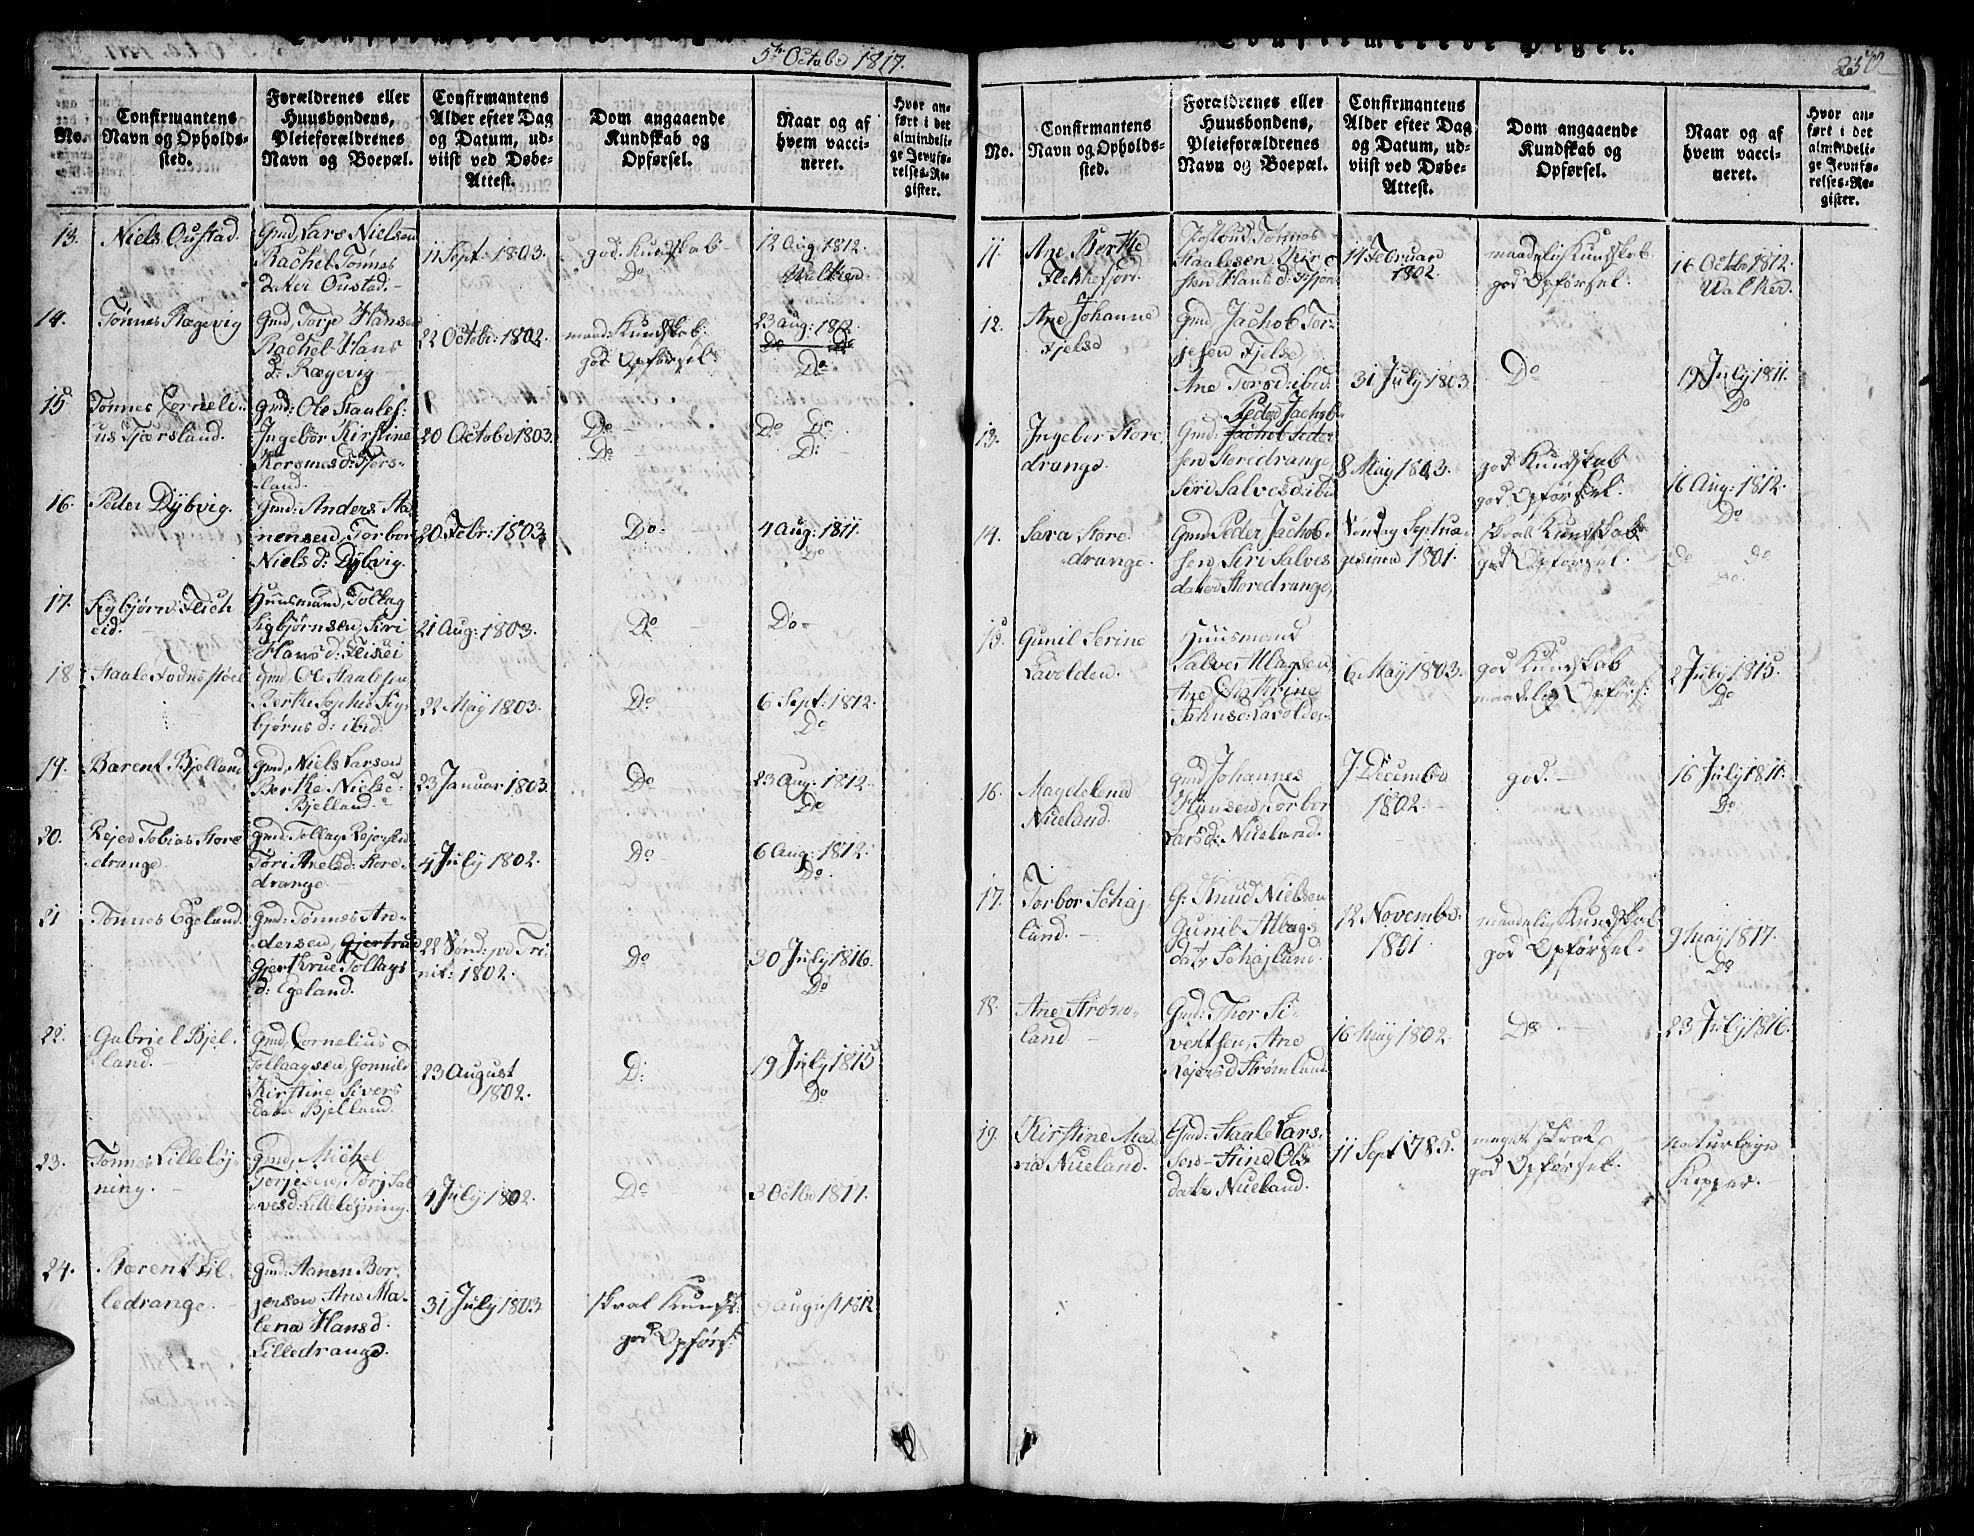 5te October 1817.
No.
Confirmantens
Navn og Opholds-
sted.
Forældrenes eller
Huusbondens,
Pleieforældrenes
Navn og Boepæl.
Confirmantens
Alder efter Dag
og Datum, ud-
viist ved Døbe-
Attest.
Dom angaaende
Kundskab og
Opførsel.
Naar og af
hvem vacci-
neret.
Hvor an-
ført i det
almindeli-
ge Jevnfø-
relses-Re-
gister.
13.
Niels Oustad.
Gmd, Lars Nielsen
Rachel Tønnes
dater Oustad.
11 Sept: 1803.
god Kundskab
Do
12 Aug: 1812.
Walker.
14.
Tønnes Rægevig
Gmd, Torje Hansen
Rachel Hans
d: Rægevig
22 Octobr: 1802.
maad: Kundskab
god Opførsel.
23 aug: 1812
Do Do
Do
15
Tonnes Corneli-
us Tjærsland.
Gmd: Ole Staales:
Ingebor Kirstine
Korsmes d: Tjørs-
land.
20 Octobr 1803.
Do
Do
Do Do
D:
16.
Peder Dybvig.
Gmd: Anders Aa-
nensen, Torbor
Niels d: Dybvig.
20 Febr: 1803
Do:
4 aug: 1811.
Do
17.
Sigbjørn Flich
eid.
Huusmand, Tollag
Sigbjørnsen, Siri
Hans d: Flikei
21 Aug: 1803.
Do
Do
18
Staale Lodnestøel
Gmd, Ole Staalesen
Berthe Sophie Sig-
bjørns d: ibid:
22 May 1803.
Do
6 Sept: 1812.
Do
19.
Barent Bjelland
Gmd, Niels Larsen
Berthe Niels d:
Bjelland.
23 Januar 1803.
Do
23 Aug: 1812.
Do
20.
Rejer Tobias Store
drange.
Gmd: Tollag Rejersen
Tøri Axelsd: Store-
drange
4 July 1802.
Do
6 Aug: 1812.
Do.
21
Tønnes Egeland.
Gmd: Tønnes An-
dersen, Gjertrud
Gjerthrue Tollags
d: Egeland.
22 Sønd: po Tri
nit: 1802.
Do
30 July 1816.
Do
22.
Gabriel Bjel-
land.
Gmd, Cornelius
Tollaagsen, Gonnild
Kirstine Sivers
dater Bjelland.
23 August
1802.
D:
19 July 1815
Do
23.
Tønnes Lilleløj-
ning.
Gmd, Michel
Torjesen, Torj Sal
vesd: Lilleløjning
4 July 1802.
Do
3 Octbr 1817.
24.
Barent Lil-
ledrange.
Gmd: Aanen Bor-
jersen Ane Ma-
lena Hans d.
Lilledrange.
31 July 1803
skral Kundsk:
god Opførs:
9 august 1812
Confirmerede Piger.
250
No.
Confirmantens
Navn og Opholds-
sted.
Forældrenes eller
Huusbondens,
Pleieforældrenes
Navn og Boepæl.
Confirmantens
Alder efter Dag
og Datum, ud-
viist ved Døbe-
Attest.
Dom angaaende
Kundskab og
Opførsel.
Naar og af
hvem vacci-
neret.
Hvor an-
ført i det
almindeli-
ge Jevnfø-
relses-Re-
gister.
11.
Ane Berthe
Flekkefjord.
Tønnes
Staalesen Kir-
sten Hans d.
14 Februar
1802.
maadelig Kundskab
god Opførsel.
16 Octobr 1812.
Walker.
12.
Ane Johanne
Fjelse
Gmd, Jachob Tor-
jesen Fjelse,
Ane Torsd: ibid:
31 July 1803.
Do
19 July 1811.
Do
13.
Ingebor Store
drange.
Peder Jachob
Gmd: Jachob Peder
sen Storedrange,
Siri Salvesd: ibid
8 May 1803.
god Kundskab
god Opførsel.
16 Aug: 1812.
Do
14.
Sara Store
drange.
Gmd Peder Jachob-
sen, Siri Salves
dater Storedrange,
Søndag Septua-
gesima 1801.
skral Kundskab
god Opførsel.
Do Do
Do.
15.
Gunil Serine
Lavolden.
Huusmand
Salve Alagsen,
Ane Cathrine
Johnsd: Lavolden.
6 May 1803.
god Kundskab
maadelig Opførs:
2 July 1815.
Do
16.
Magdelena
Nueland.
Gmd Johannes
Hansen, Torbor
Larsd: Nueland.
7 December
1802.
god.
16 July 1811.
Do
17.
Torbor Schøj-
land.
G: Knud Nielsen
Gunil Atlags
datr Schøjland.
12 November
1801
maadelig Kundskab
god Opførsel.
9 may 1817.
Do
18.
Ane Strøm-
land.
Gmd: Thor Si-
vertsen, Ane
Rejers d Strømland
16 May 1802.
Do
23 July 1816.
19.
Kirstine Ma-
ria Nueland.
Gmd: Staale Lars
sen Stine Ols
datr Nueland.
11 Sept 1785.
meget skral,
god Opførsel.
naturlige
Kopper.